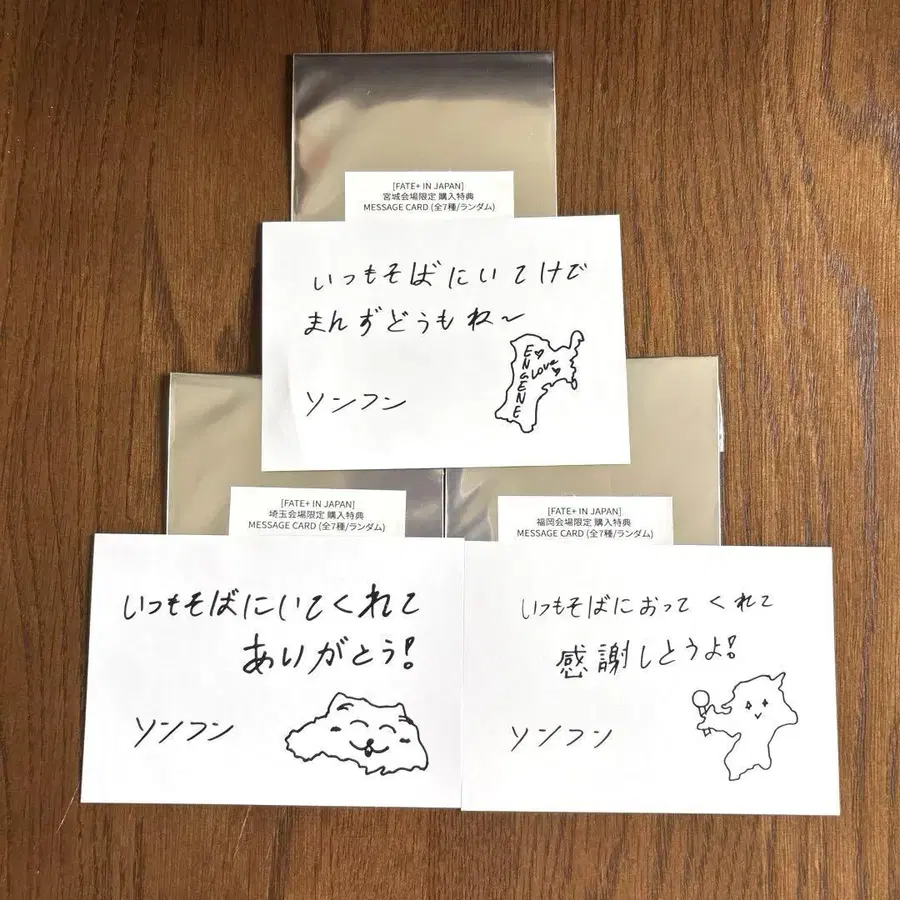 [FATE+ IN JAPAN]
宮城会場限定 購入特典
MESSAGE CARD (全7種/ランダム)
いつもそばにいてけで
まんずどうもね〜
ソンフン
ENGENE
LOVE
[FATE+ IN JAPAN]
埼玉会場限定 購入特典
MESSAGE CARD (全7種/ランダム)
いつもそばにいてくれて
ありがとう!
ソンフン
[FATE+ IN JAPAN]
福岡会場限定 購入特典
MESSAGE CARD (全7種/ランダム)
いつもそばにおってくれて
感謝しとうよ!
ソンフン